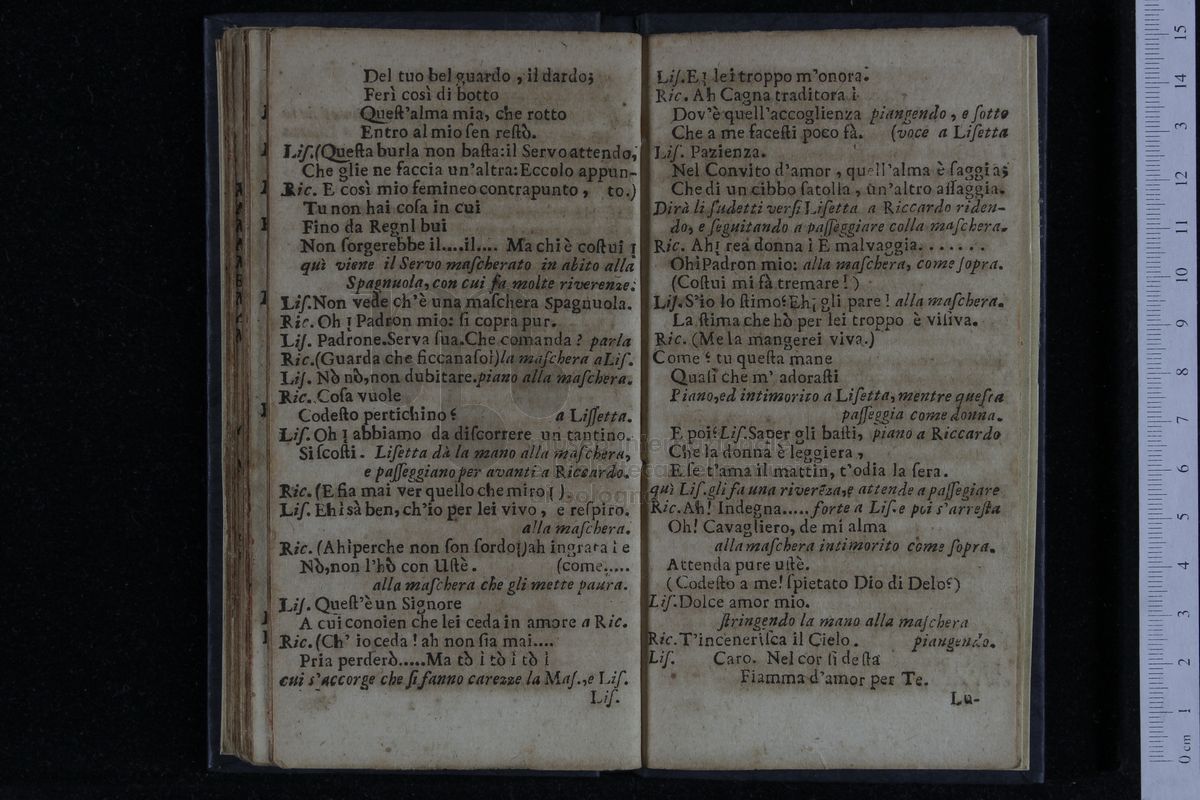 Del tuo bel guardo , il dardo;
Ferì così di botto
Queſt'alma mia, che rotto
Entro al mio ſen reſtò.
Liſ.(Queſta burla non baſta:il Servo attendo,
Che glie ne faccia un'altra: Eccolo appun-
Ric. E così mio femineo contrapunto , to.)
Tu non hai coſa in cui
Fino da Regnl bui
Non ſorgerebbe il....il.... Ma chi è coſtui ?
quì viene il Servo maſcherato in abito alla
Spagnuola, con cui fa molte riverenze:
Liſ.Non vede ch'è una maſchera Spagnuola.
Ric. Oh ! Padron mio: ſi copra pur.
Liſ. Padrone.Serva ſua.Che comanda ? parla
Ric.(Guarda che ficcanaſo!)la maſchera a Liſ.
Liſ. Nò nò,non dubitare.piano alla maſchera.
Ric. Coſa vuole
Codeſto pertichino ? a Liſſetta.
Liſ. Oh ! abbiamo da diſcorrere un tantino.
Si ſcoſti . Liſetta dà la mano alla maſchera,
e paſſeggiano per avanti a Riccardo.
Ric. (E fia mai ver quello che miro ! ).
Liſ. Eh i sà ben, ch'io per lei vivo , e reſpiro.
alla maſchera.
Ric. (Ahi perche non ſon ſordo!)ah ingrata i e
Nò,non l'hò con Uſtè . (come.....
alla maſchera che gli mette paura.
Liſ. Queſt'è un Signore
A cui convien che lei ceda in amore a Ric.
Ric. (Ch' io ceda ! ah non ſia mai....
Pria perderò.....Ma tò i tò i tò i
cui s'accorge che ſi fanno carezze la Maſ.,e Liſ.
Liſ.
Liſ.E! lei troppo m'onora.
Ric. Ah Cagna traditora i
Dov'è quell'accoglienza piangendo , e ſotto
Che a me faceſti poco fà. (voce a Liſetta
Liſ. Pazienza.
Nel Convito d'amor , quell'alma è ſaggia;
Che di un cibbo ſatolla , ùn'altro aſſaggia.
Dirà li ſudetti verſi Liſetta a Riccardo riden-
do, e ſeguitando a paſſeggiare colla maſchera.
Ric. Ah! rea donna i E malvaggia. . . . . . .
Oh!Padron mio: alla maſchera, come ſopra.
(Coſtui mi fà tremare ! )
Liſ.S'io lo ſtimo?Eh! gli pare ! alla maſchera.
La ſtima che hò per lei troppo è viſiva.
Ric. (Me la mangerei viva.)
Come ? tu queſta mane
Quaſi che m' adoraſti
Piano,ed intimorito a Liſetta, mentre queſta
paſſeggia come donna.
E poi?Liſ.Saper gli baſti, piano a Riccardo
Che la donna è leggiera ,
E ſe t'ama il mattin, t'odia la ſera.
quì Liſ.gli fa una riverẽza,e attende a paſſegiare
Ric. Ah! Indegna.....forte a Liſ.e poi s'arreſta
Oh! Cavagliero, de mi alma
alla maſchera intimorito come ſopra.
Attenda pure uſtè.
( Codeſto a me! ſpietato Dio di Delo?)
Liſ.Dolce amor mio.
ſtringendo la mano alla maſchera
Ric.T'inceneriſca il Cielo . piangendo.
Liſ. Caro. Nel cor ſi deſta
Fiamma d'amor per Te.
Lu-
0 cm 1 2 3 4 5 6 7 8 9 10 11 12 13 14 15